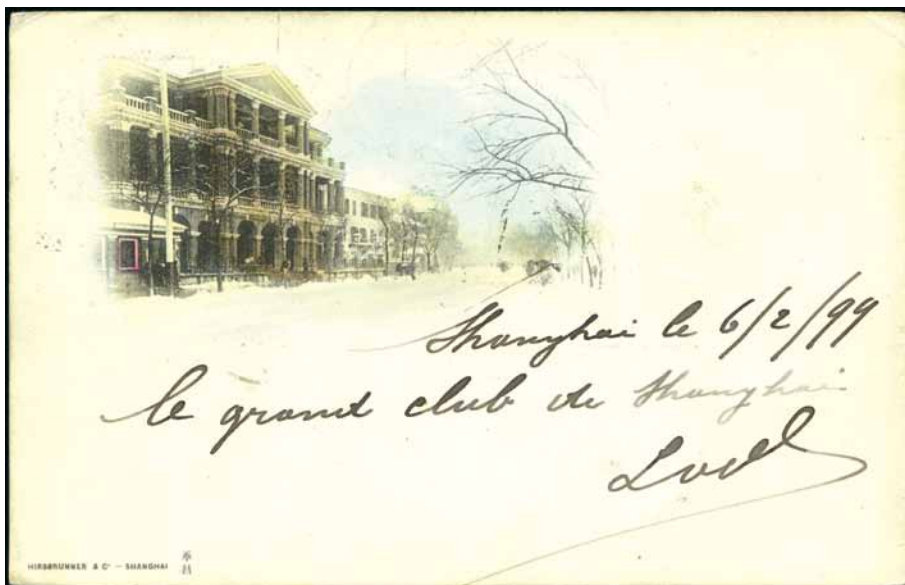 Shanghai le 6/2/99
le grand club de Shanghai
HIRSBRUNNER & Cº - SHANGHAI